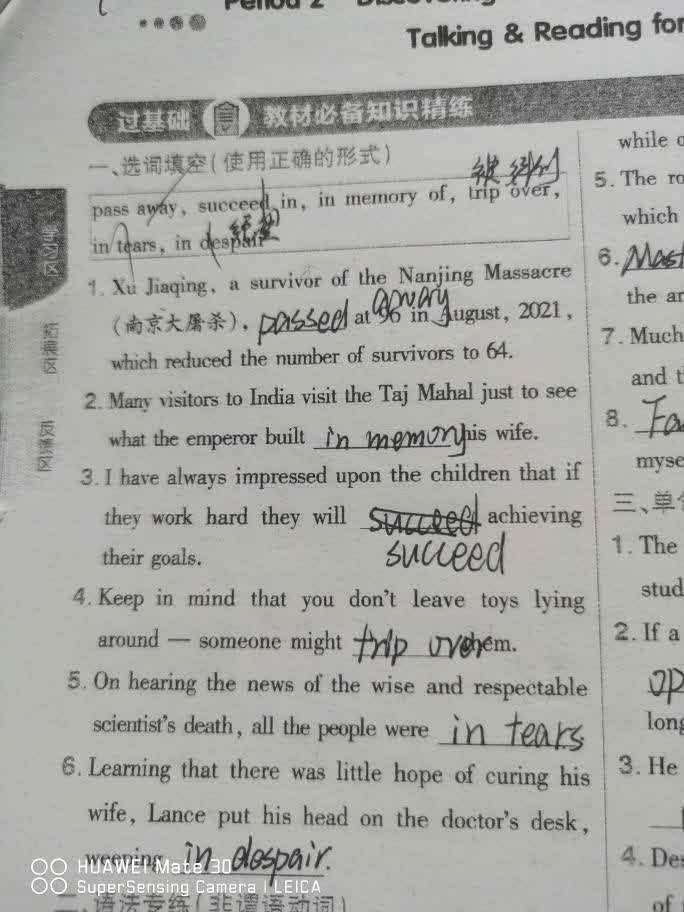 Period 2 Discovering
Talking & Reading for
过基础 教材必备知识精练
一、选词填空(使用正确的形式)
被绊倒
pass away, succeed in, in memory of, trip over,
in tears, in despair
1. Xu Jiaqing, a survivor of the Nanjing Massacre
(南京大屠杀), passed away at 96 in August, 2021,
which reduced the number of survivors to 64.
2. Many visitors to India visit the Taj Mahal just to see
what the emperor built in memory his wife.
3. I have always impressed upon the children that if
they work hard they will succeed achieving
their goals. succeed
4. Keep in mind that you don't leave toys lying
around — someone might trip over them.
5. On hearing the news of the wise and respectable
scientist's death, all the people were in tears
6. Learning that there was little hope of curing his
wife, Lance put his head on the doctor's desk,
weeping in despair.
二、语法专练(非谓语动词)
while
5. The
which
6.
the
7. Much
and
8.
三、单
1. The
2. If a
3. He
4.
of
学习区
HUAWEI Mate 30
SuperSensing Camera | LEICA